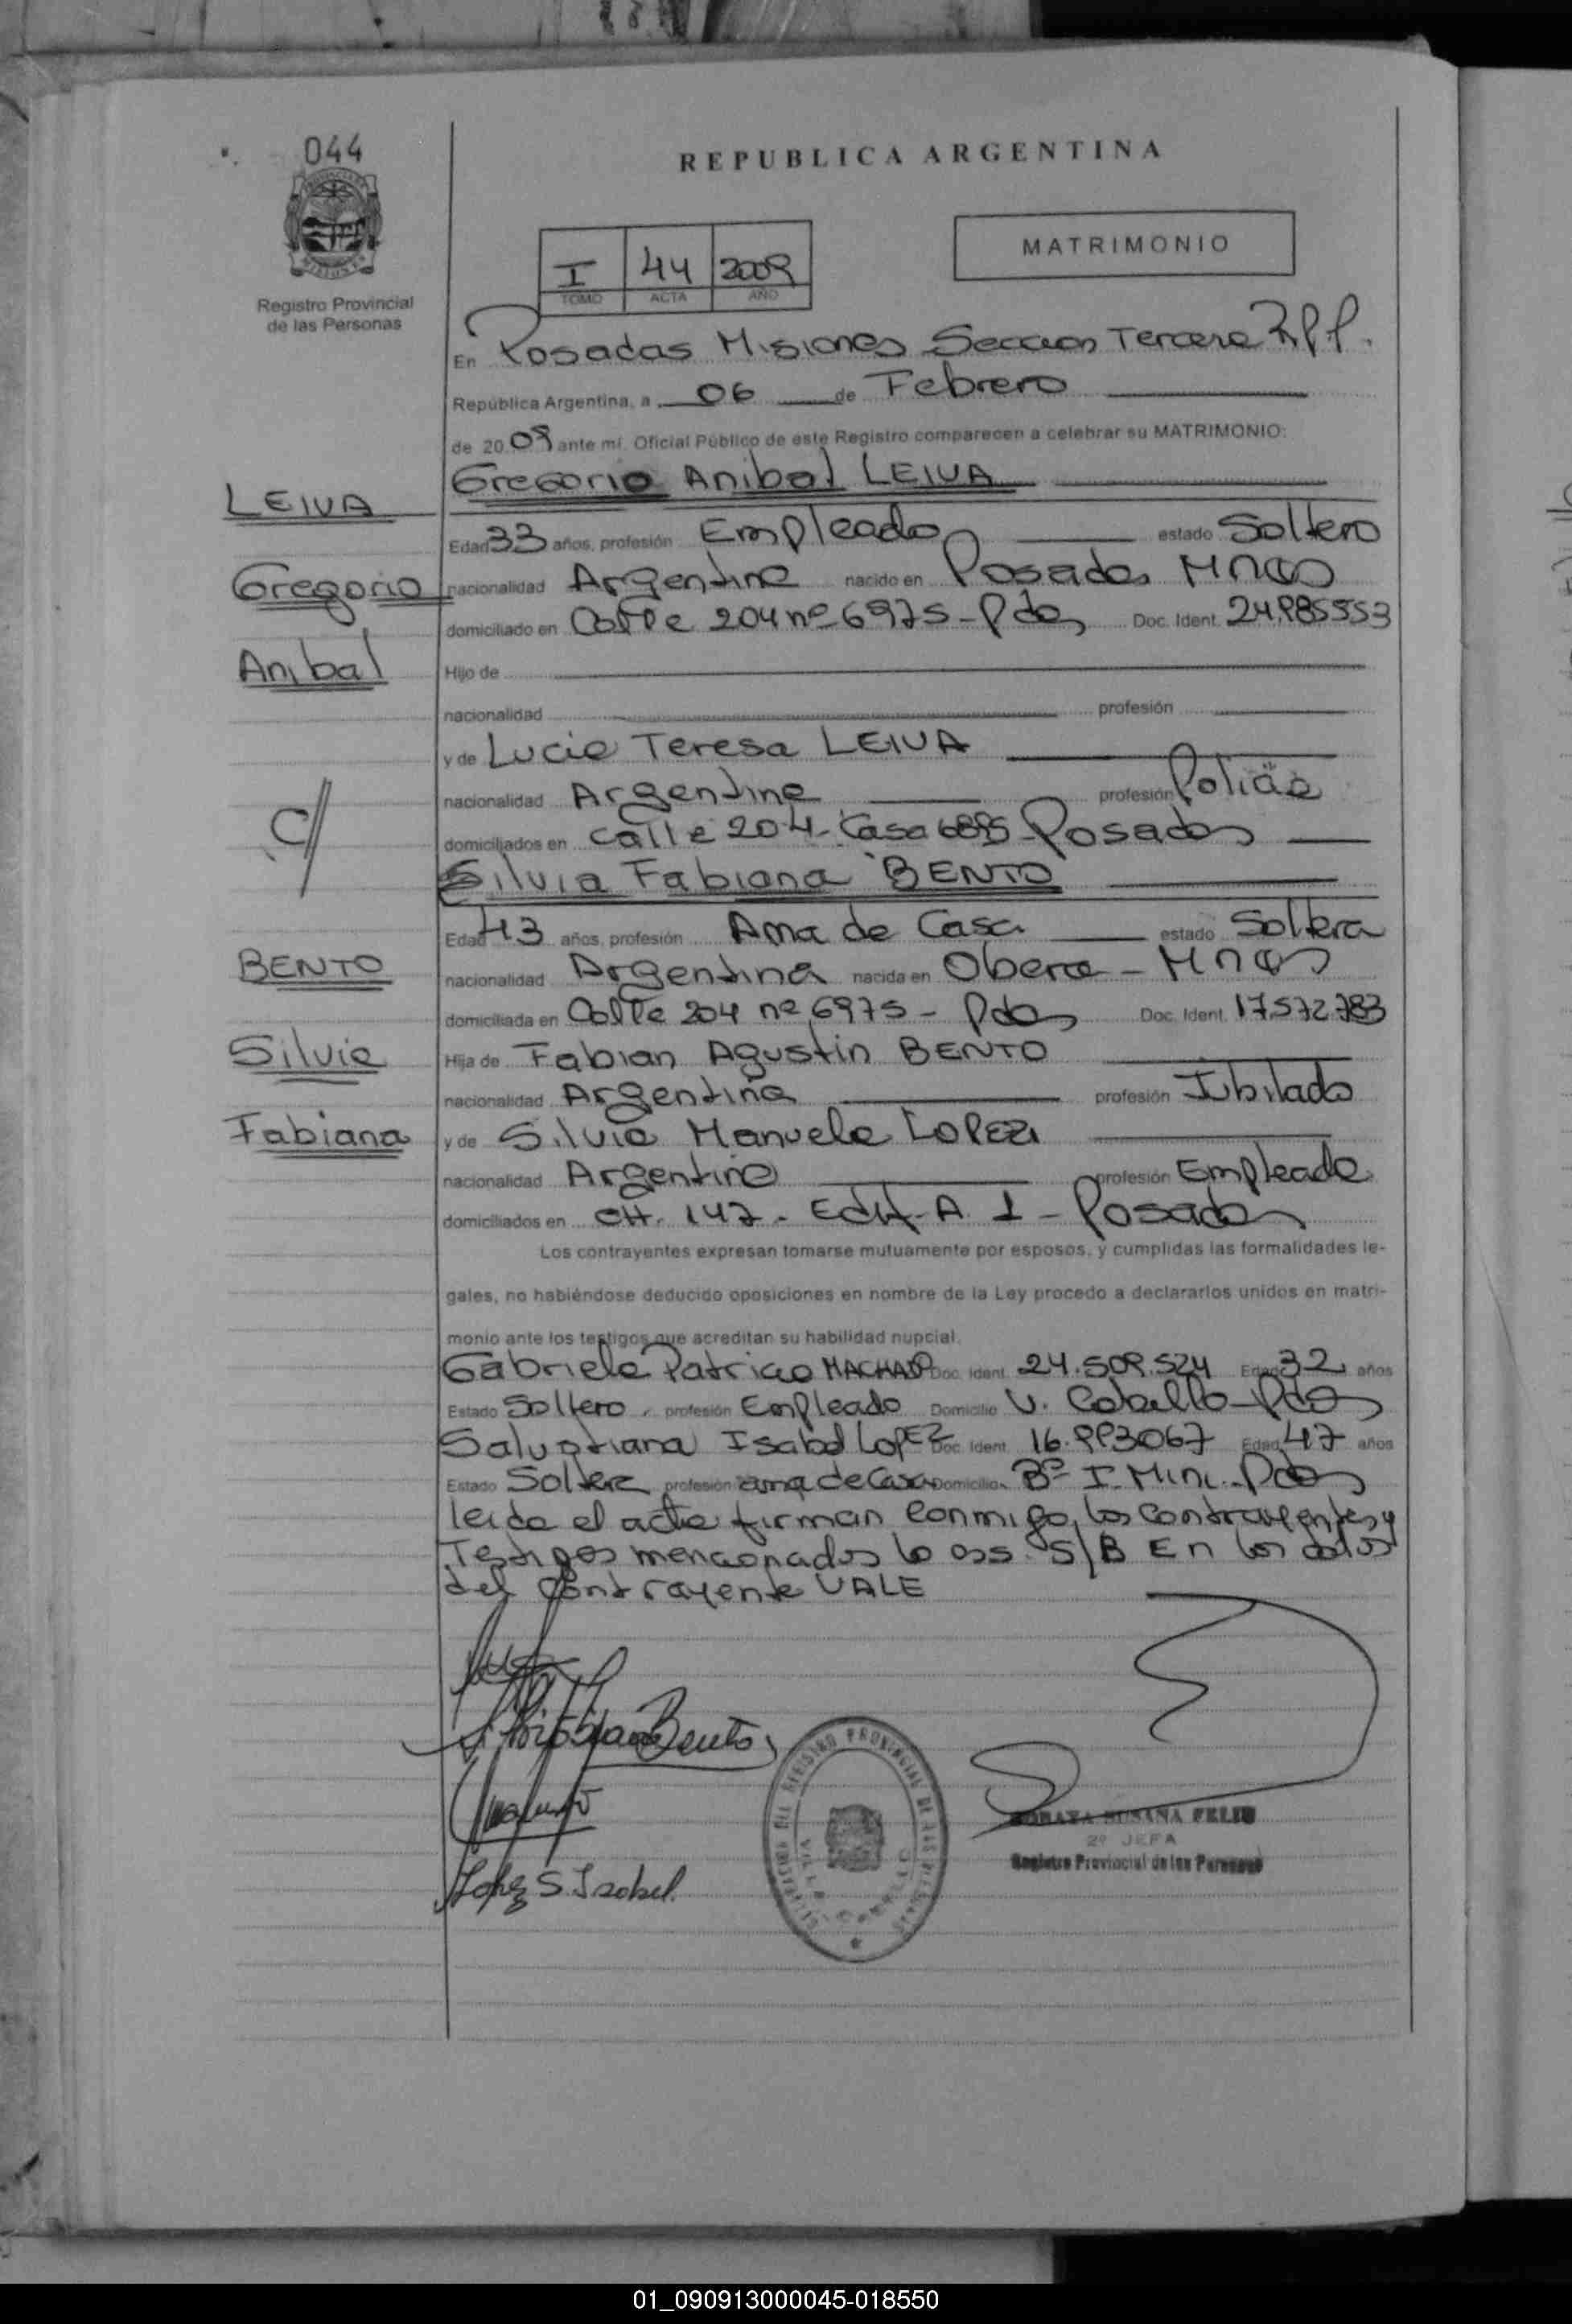 044
REPUBLICA ARGENTINA
MATRIMONIO
I 44 2009
TOMO ACTA AÑO
Registro Provincial
de las Personas
En Posadas Misiones Seccion Tercera R.P.P.
República Argentina, a 06 de Febrero
de 2009 ante mí, Oficial Público de este Registro comparecen a celebrar su MATRIMONIO:
Gregorio Anibal LEIVA
LEIVA
Edad 33 años, profesión Empleado estado Soltero
Gregorio
nacionalidad Argentina nacido en Posadas Mnes
domiciliado en Calle 204 nº 6975 - Pdas Doc. Ident. 24.985553
Anibal
Hijo de
nacionalidad profesión
y de Lucia Teresa LEIVA
nacionalidad Argentina profesión Policia
C/
domiciliados en calle 204 - Casa Posadas
Silvia Fabiana BENTO
Edad 43 años, profesión Ama de Casa estado Soltera
BENTO
nacionalidad Argentina nacida en Obera - Mnes
domiciliada en Calle 204 nº 6975 - Pdas Doc. Ident. 17.572.783
Silvia
Hija de Fabian Agustin BENTO
nacionalidad Argentina profesión Jubilado
Fabiana
y de Silvia Manuela LOPEZ
nacionalidad Argentina profesión Empleada
domiciliados en CH. 147 - Edif. A. 1 - Posadas
Los contrayentes expresan tomarse mutuamente por esposos, y cumplidas las formalidades le-
gales, no habiéndose deducido oposiciones en nombre de la Ley procedo a declararlos unidos en matri-
monio ante los testigos que acreditan su habilidad nupcial.
Gabriela Patricia MACHADO Doc. Ident. 24.509.524 Edad 32 años
Estado Soltero profesión Empleado Domicilio V. Cabello - Pdas
Salustiana Isabel LOPEZ Doc. Ident. 16.993067 Edad 47 años
Estado Soltera profesión ama de Casa Domicilio Bº I. Mini - Pdas
leida el acta firman conmigo los contrayentes y
Testigos mencionados lo S/B En los datos
del Contrayente VALE
Bento
Lopez S. Isabel.
REGISTRO PROVINCIAL DE LAS PERSONAS
SUSANA FELIU
2º JEFA
Registro Provincial de las Personas
01_090913000045-018550